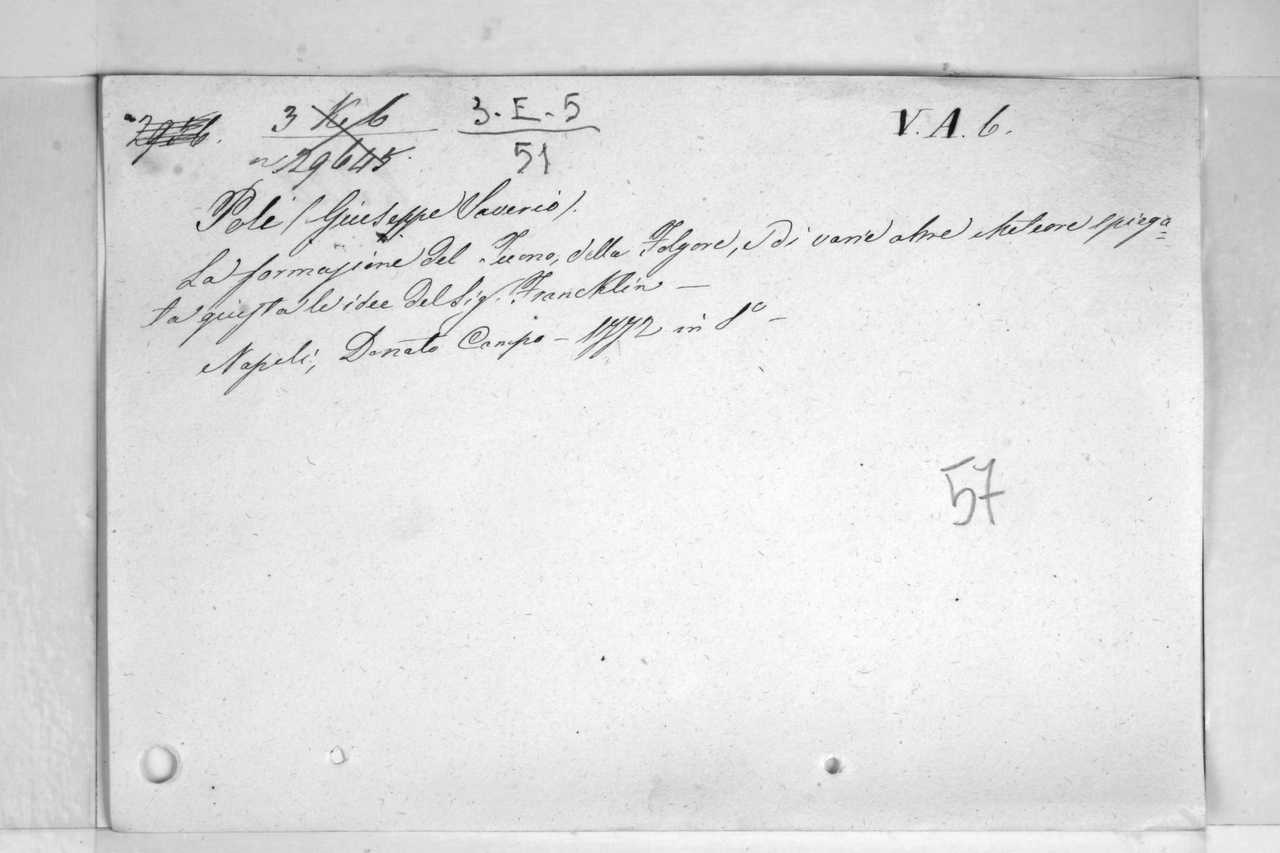 3 K. 6 3. E. 5 V. A. 6.
n 29645. 51
Poli (Giuseppe Saverio).
La formazione del Tuono, della Folgore, e di varie altre Meteore spiega=
ta giusta le idee del Sig. Francklin —
Napoli, Donato Campo — 1772 in 8º —
57